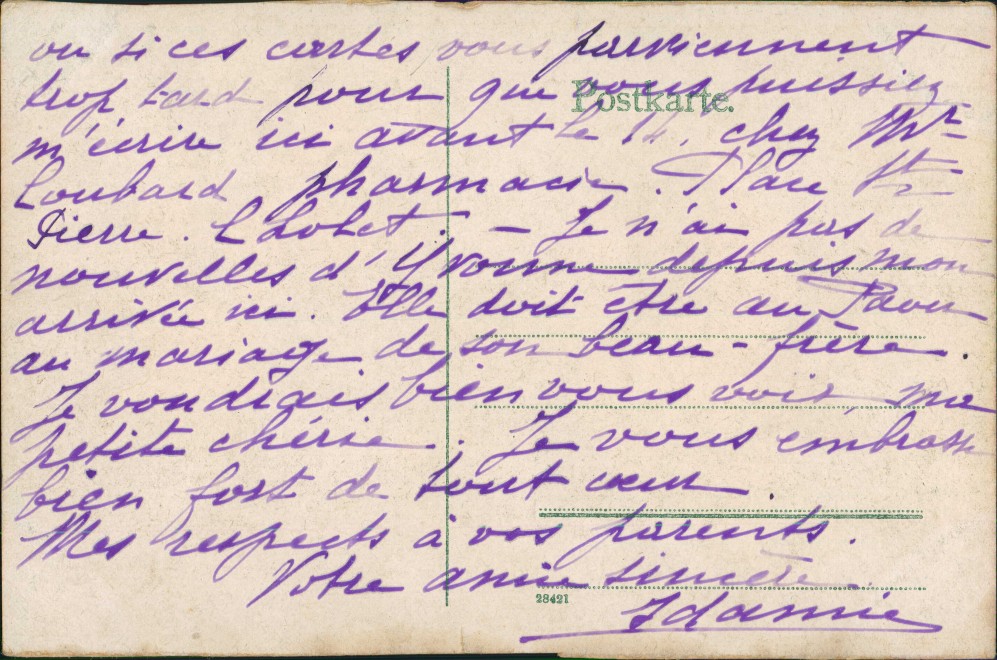 ou si ces cartes vous parviennent
trop tard pour que vous puissiez
Postkarte.
m'écrire ici avant le 14. chez Mr
Loubard pharmacie. Place St
Pierre. - Je n'ai pas de
nouvelles d'Yvonne depuis mon
arrivée ici. Elle doit être au
au mariage de son beau-frère.
Je voudrais bien vous voir, ma
petite chérie. Je vous embrasse
bien fort de tout cœur.
Mes respects à vos parents.
Votre amie sincère.
28421
Idamie